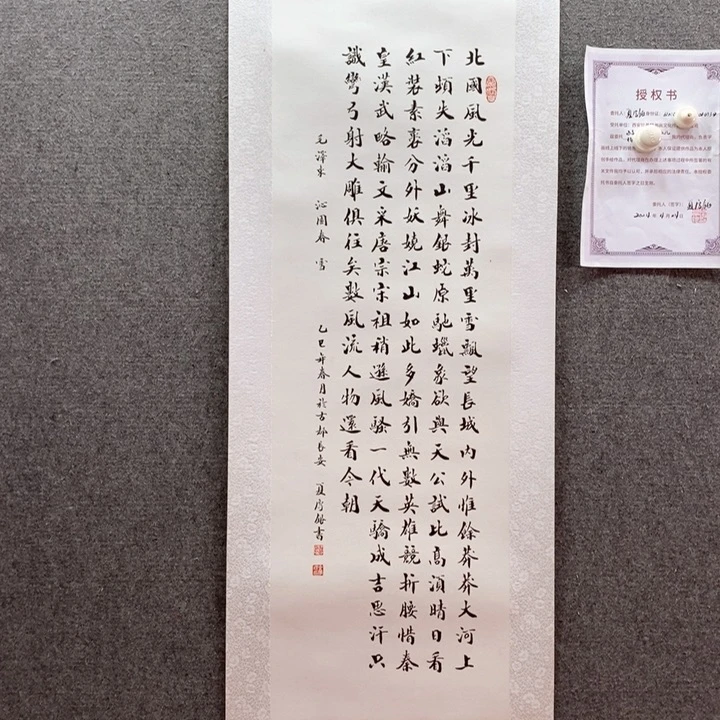 北國風光千里冰封萬里雪飄望長城內外惟餘莽莽大河上
下頓失滔滔山舞銀蛇原馳蠟象欲與天公試比高須晴日看
紅裝素裹分外妖嬈江山如此多嬌引無數英雄競折腰惜秦
皇漢武略輸文采唐宗宋祖稍遜風騷一代天驕成吉思汗只
識彎弓射大雕俱往矣數風流人物還看今朝
毛澤東 沁園春 雪 乙巳年春月於古都長安 夏 書
授权书
委托人
委托人（签字）：